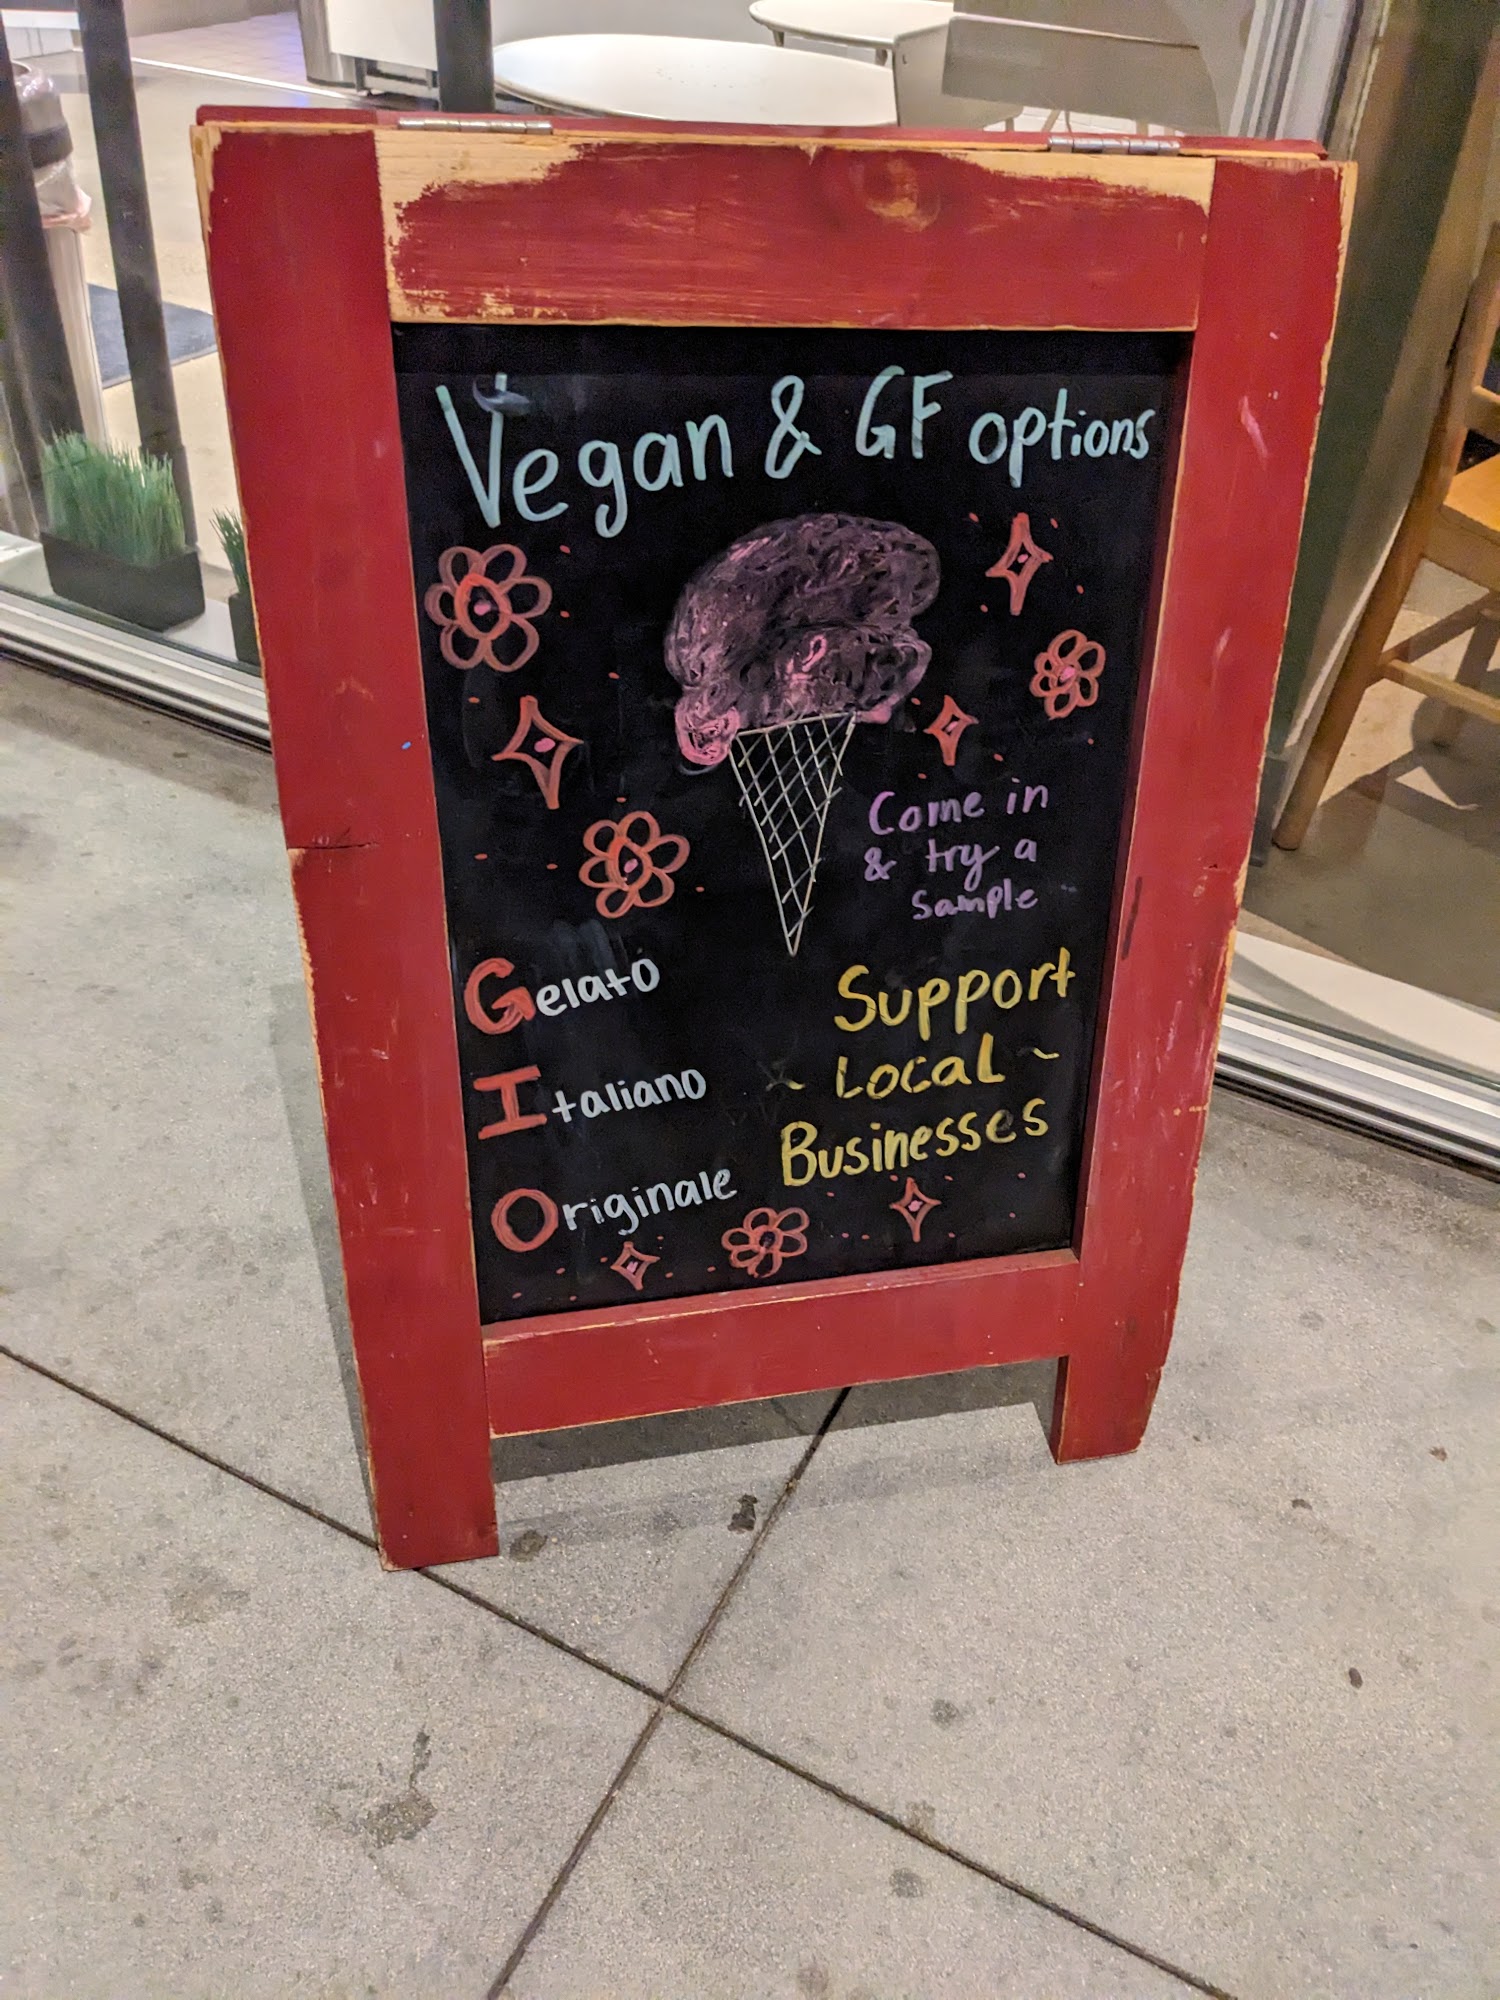 Vegan & GF options
Come in
& try a
sample
Gelato
Italiano
Originale
Support
~ Local ~
Businesses